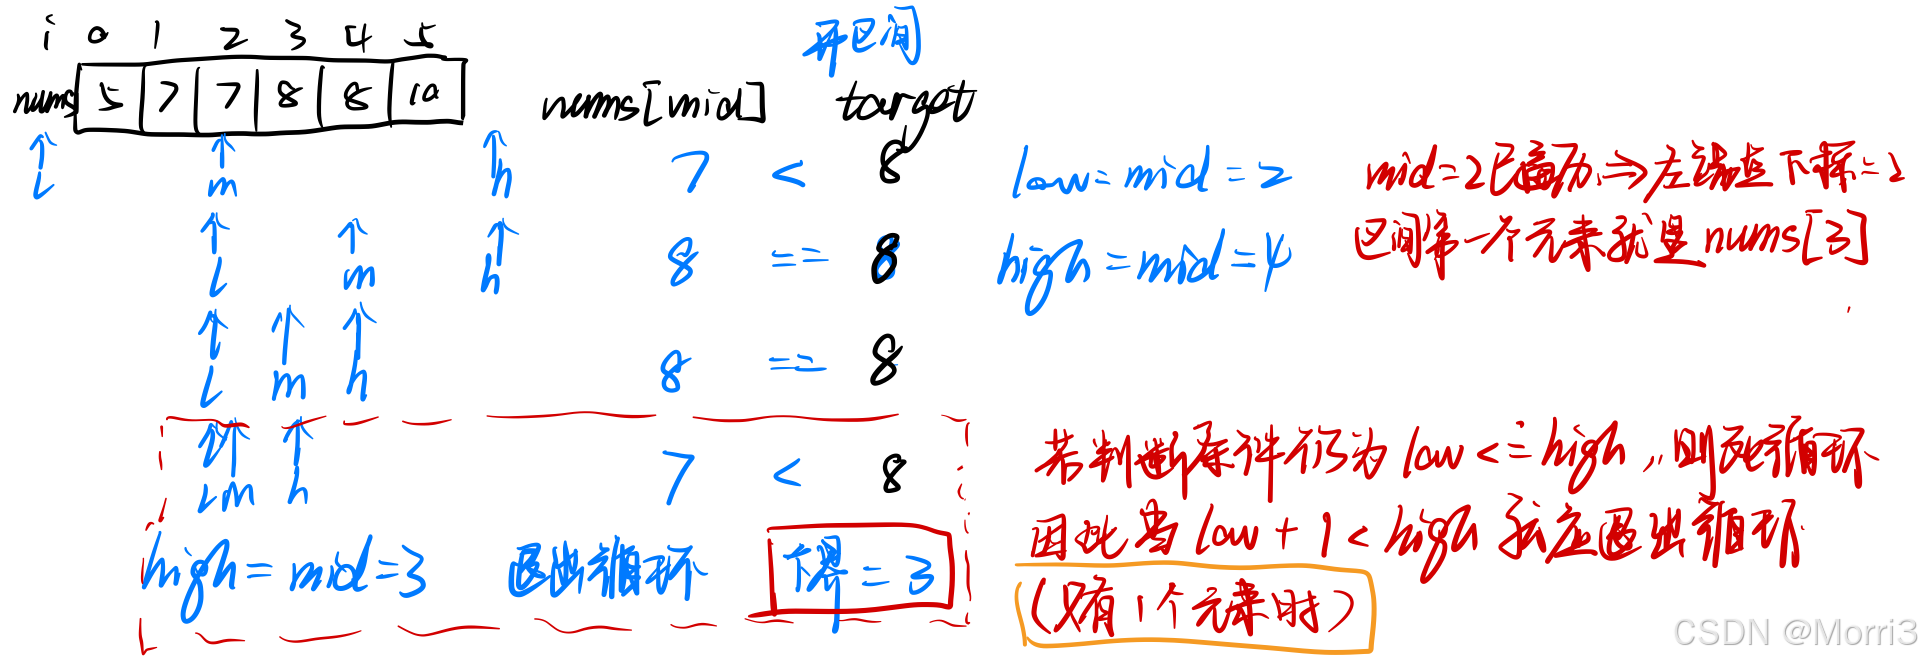 i 0 1 2 3 4 5
开区间
nums 5 7 7 8 8 10
nums[mid] target
l m h 7 < 8 low=mid=2 mid=2已遍历,⇒左端点下标=2
区间第一个元素就是nums[3]
l m h 8 == 8 high=mid=4
l m h 8 == 8
若判断条件仍为low<=high,则死循环
l m h 7 < 8
因此当low+1<high 就应退出循环
high=mid=3 退出循环 下界=3
(只有1个元素时)
CSDN @Morri3